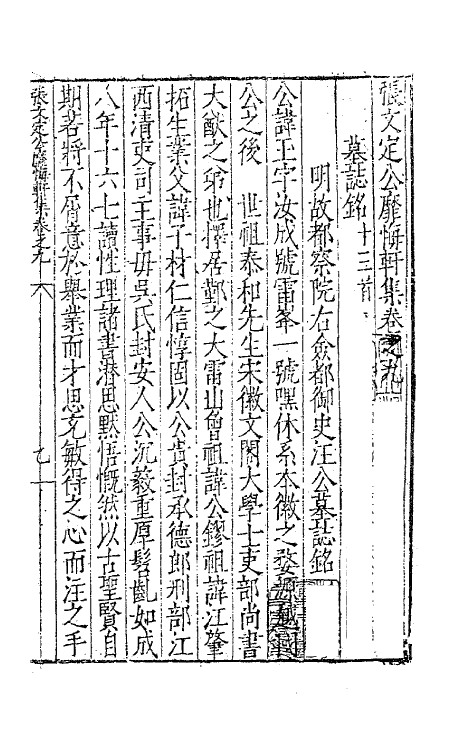 張文定公靡悔軒集卷之九
墓誌銘十三首
明故都察院右僉都御史汪公墓誌銘
公諱玉字汝成號雷峯一號嘿休系本徽之婺源越國
公之後　世祖泰和先生宋徽文閣大學士吏部尚書
大猷之弟也擇居鄞之大雷山曾祖諱公鏐祖諱江肇
拓生業父諱子材仁信惇固以公貴封承德郎刑部江
西清吏司主事毋吳氏封安人公沉毅重厚髫齔如成
人年十六七讀性理諸書潛思默悟慨然以古聖賢自
期若將不屑意於舉業而才思克敏得之心而注之手
張文定公靡悔軒集卷之九